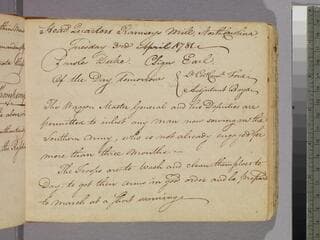 Head Quarters Ramseys Mill, North Carolina
Tuesday 3rd April 1781
Parole Duke. C. Sign Earl.
Of the Day Tomorrow { Lt Col Comt Ford
& Adjutant Boyd
The Waggon Master General and his Deputies are
permitted to inlist any man now serving in the
Southern Army, who is not already engaged for
more than three Months
The Troops are to wash and clean themselves to
Day to get their arms in God order and be prepared
to march at a short warning